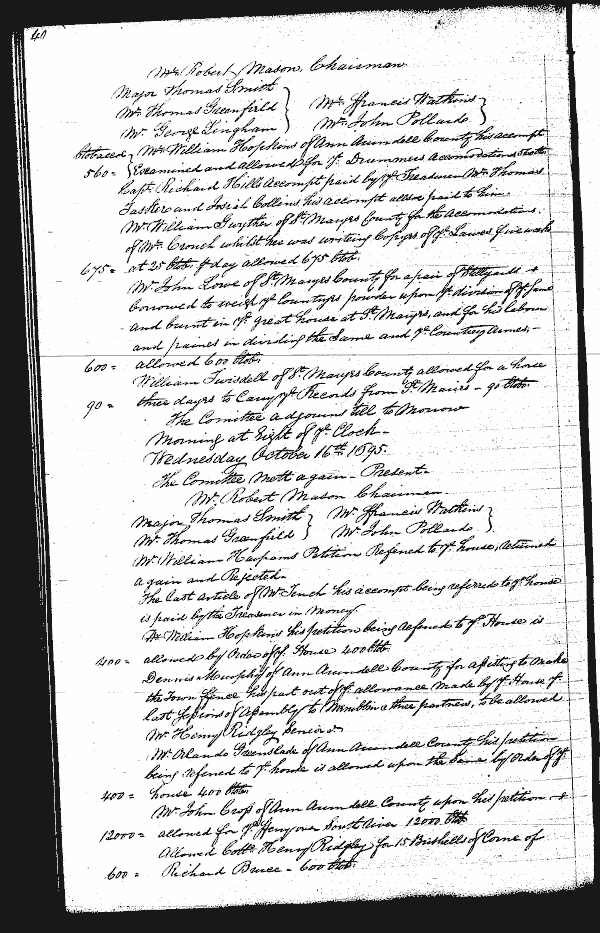 40
Mr. Robert Mason, Chairman
Major Thomas Smith
Mr. Thomas Greenfield
Mr. George Lingham
Mr. Ffrancis Watkins
Mr. John Pollard
Mr. William Hopkins of Ann Arundell County his accompt
560 = Examined and allowed for ye Drummers accomodations
Capt. Richard Hill Accompt paid by ye Treasurer Mr. Thomas
Tasker and Josiah Collins his accompt allso paid to him.
Mr. William Gwyther of St. Maryes County for the Accomodations
of Mr. Crouch whilst he was writing Copyes of ye Lawes five weeks
675 = at 25 lbtob. ye day allowed 675 lbtob.
Mr. John Lowe of St. Maryes County for a pair of Stillyards &
borrowed to weigh ye Countrys powder upon ye division of ye same
and burnt in ye great house at St. Maryes, and for his labour
and paines in dividing the Same and ye Country Armes, -
600 = allowed 600 lbtob.
William Twisdell of St. Maryes County allowed for a horse
90 = three dayes to Carry ye Records from St. Maries - 90 lbtob.
The Comittee adjourns till to Morrow
Morning at Eight of ye Clock -
Wednesday October 16th 1695.
The Comittee Mett again - Present -
Mr. Robert Mason Chairman
Major Thomas Smith
Mr. Thomas Greenfield
Mr. Ffrancis Watkins
Mr. John Pollard
Mr. William Petition Referred to ye house, returned
again and Rejected -
The last article of Mr. Tench his accompt being referred to ye house
is paid by the Treasurer in Money.
Mr. William Hopkins his petition being referred to ye House is
400 = allowed by Order of ye House 400 lbtob.
Dennis Murphy of Ann Arundell County for assisting to make
the Town ffence his part out of ye allowance made by ye House ye
last sessions of Assembly to three partners, to be allowed
Mr. Henry Ridgley Senior.
Mr. Orlando Greenslade of Ann Arundell County his petition
being referred to ye house is allowed upon the same by Order of ye
400 = house 400 lbtob.
Mr. John Cross of Ann Arundell County upon his petition &
12000 = allowed for ye fferry over South River 12000 lbtob.
Allowed Collo. Henry Ridgley for 15 Bushells of Corne of
600 = Richard Bruce - 600 lbtob.